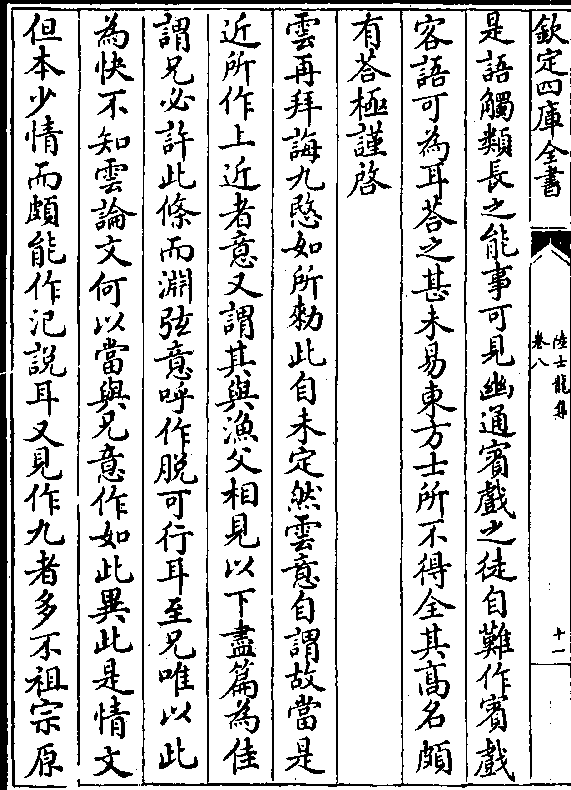 欽定四庫全書
陸士龍集
卷八
十一
是語觸類長之能事可見幽通賓戲之徒自難作賓戲
客語可為耳荅之甚未易東方士所不得全其髙名頗
有荅極謹啓
雲再拜誨九愍如所勑此自未定然雲意自謂故當是
近所作上近者意又謂其與漁父相見以下盡篇為佳
謂兄必許此條而淵弦意呼作脱可行耳至兄唯以此
為快不知雲論文何以當與兄意作如此異此是情文
但本少情而頗能作氾說耳又見作九者多不祖宗原